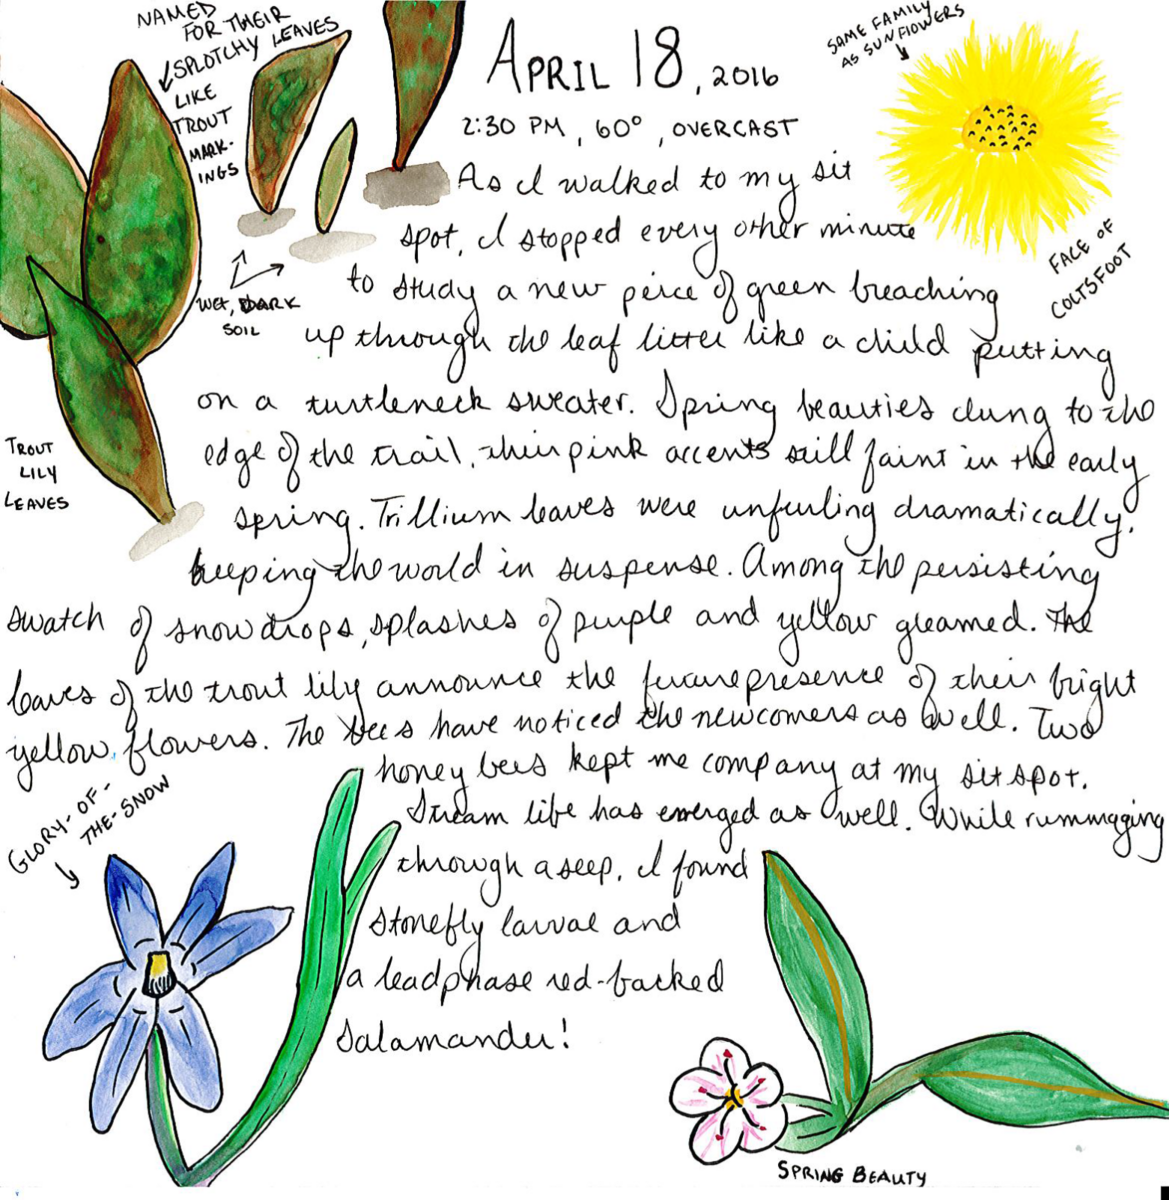 NAMED
FOR THEIR
SPLOTCHY LEAVES
LIKE
TROUT
MARK-
INGS
APRIL 18, 2016
2:30 PM, 60°, OVERCAST
SAME FAMILY
AS SUNFLOWERS
FACE OF
COLTSFOOT
WET, DARK
SOIL
TROUT
LILY
LEAVES
As I walked to my sit
spot, I stopped every other minute
to study a new peice of green breaching
up through the leaf litter like a child putting
on a turtleneck sweater. Spring beauties clung to the
edge of the trail, their pink accents still faint in the early
spring. Trillium leaves were unfurling dramatically,
keeping the world in suspense. Among the persisting
swatch of snowdrops, splashes of purple and yellow gleamed. The
leaves of the trout lily announce the future presence of their bright
yellow flowers. The bees have noticed the newcomers as well. Two
honey bees kept me company at my sit spot.
Stream life has emerged as well. While rummaging
through a seep, I found
stonefly larvae and
a leadphase red-backed
salamander!
GLORY-OF-
THE-SNOW
SPRING BEAUTY